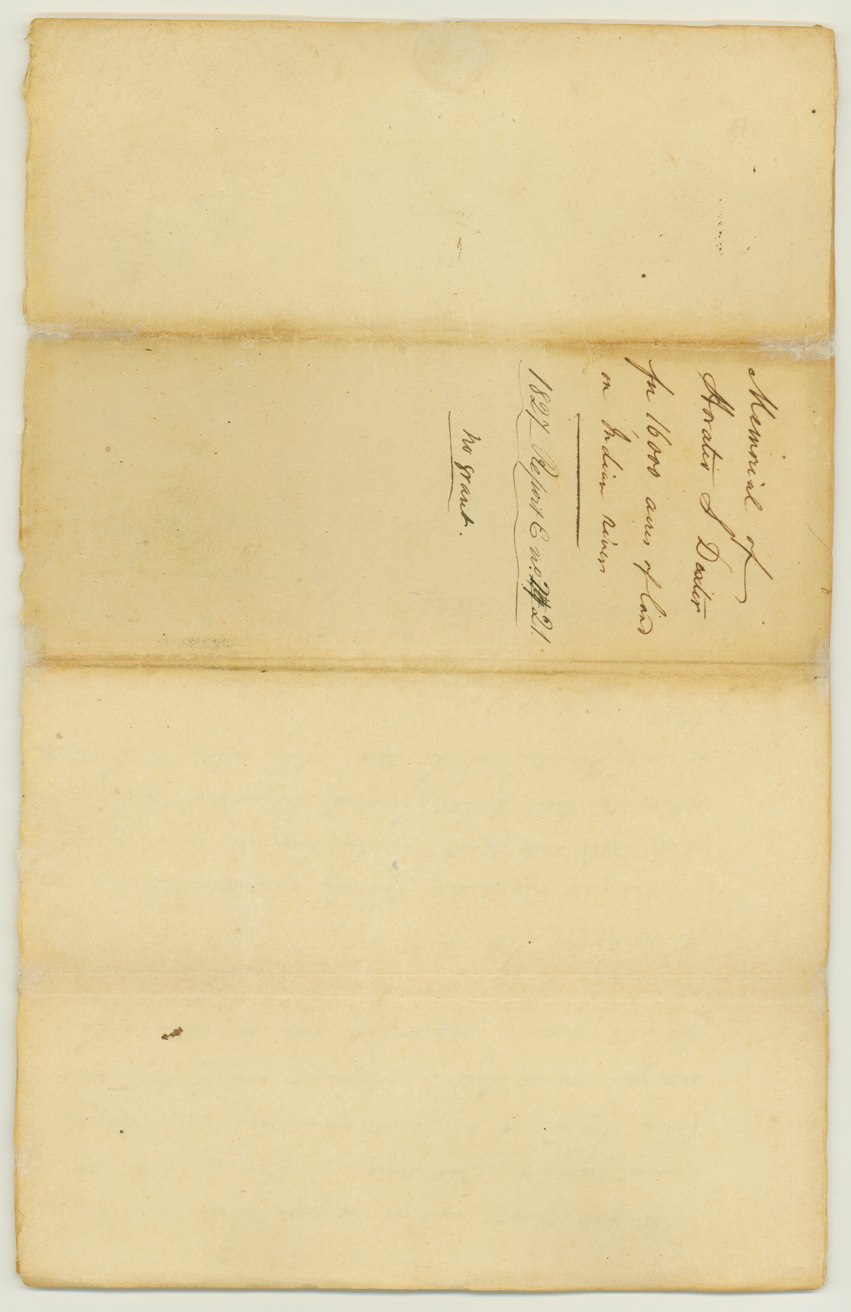 Memorial of
Horatio S Dexter
for 16000 acres of land
on Indian River
1827 Report E no. 21.
No grant.